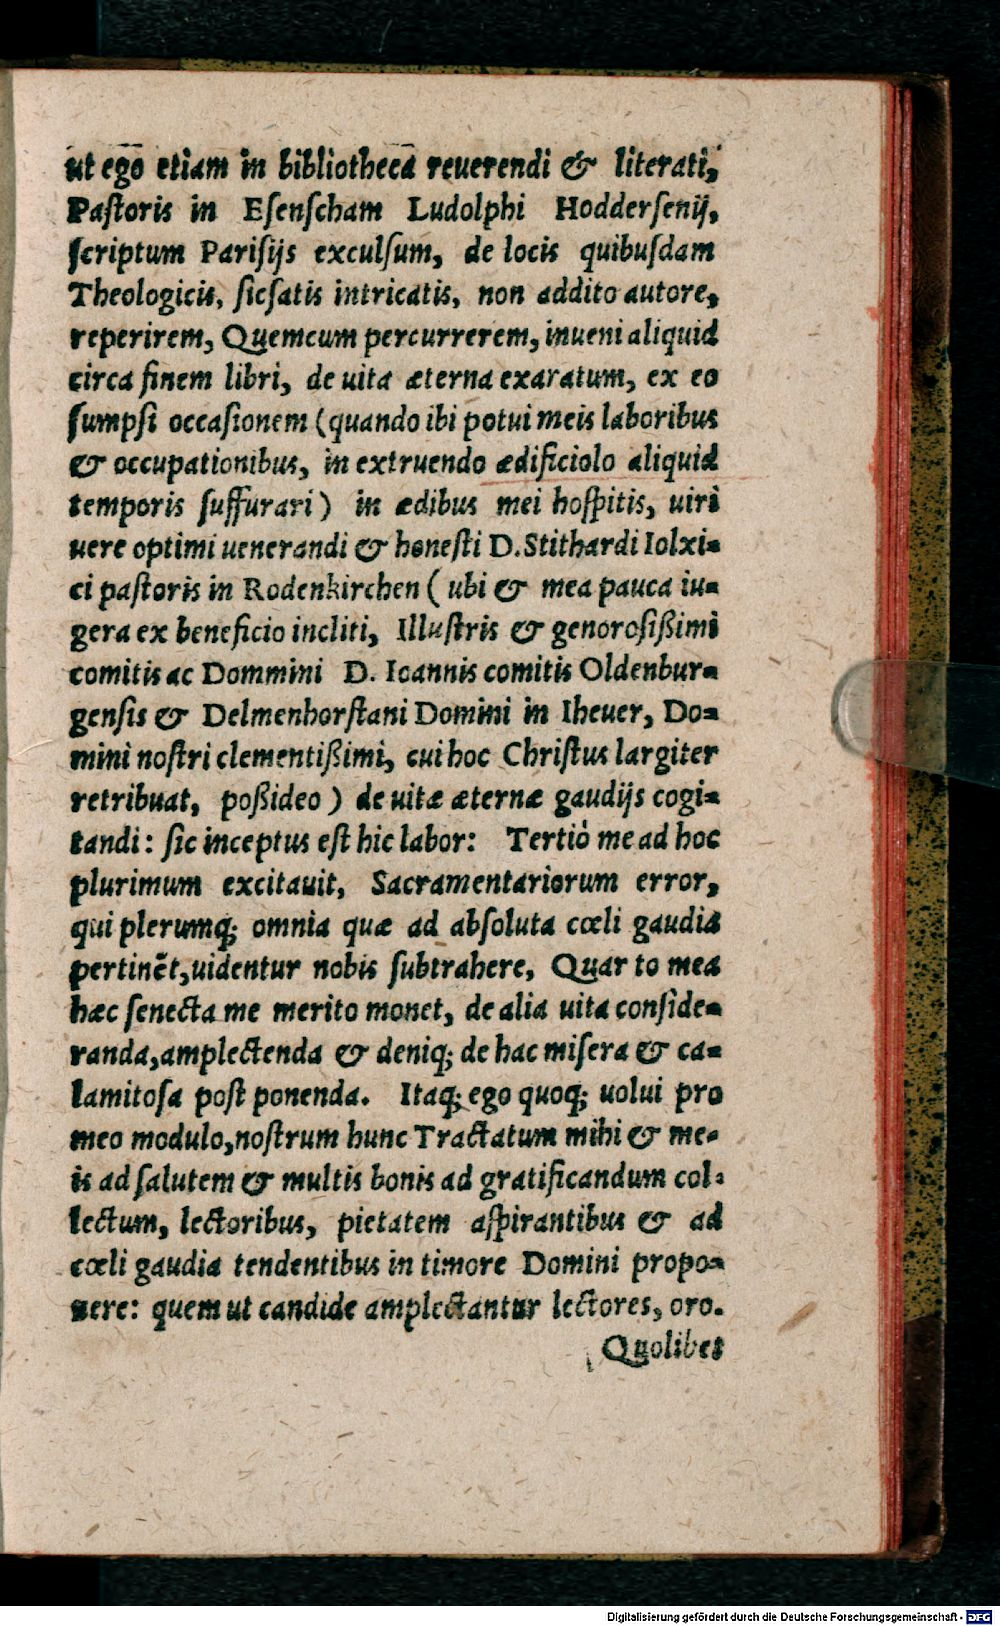 ut ego etiam in bibliotheca reuerendi & literati,
Paſtoris in Eſenſcham Ludolphi Hodderſenij,
ſcriptum Pariſijs exculſum, de locis quibuſdam
Theologicis, ſicſatis intricatis, non addito autore,
reperirem, Quemcum percurrerem, inueni aliquid
circa finem libri, de uita æterna exaratum, ex eo
ſumpſi occaſionem (quando ibi potui meis laboribus
& occupationibus, in extruendo ædificiolo aliquid
temporis ſuffurari) in ædibus mei hoſpitis, uiri
uere optimi uenerandi & honeſti D. Stithardi Iolxi⸗
ci paſtoris in Rodenkirchen (ubi & mea pauca iu⸗
gera ex beneficio incliti, Illuſtris & genoroſißimi
comitis ac Dommini D. Ioannis comitis Oldenbur⸗
genſis & Delmenhorſtani Domini in Iheuer, Do⸗
mini noſtri clementißimi, cui hoc Chriſtus largiter
retribuat, poßideo) de uitæ æternæ gaudijs cogi⸗
tandi: ſic inceptus eſt hic labor: Tertiò me ad hoc
plurimum excitauit, Sacramentariorum error,
qui plerumq; omnia quæ ad abſoluta cœli gaudia
pertinẽt, uidentur nobis ſubtrahere, Quar to mea
hæc ſenecta me merito monet, de alia uita conſide⸗
randa, amplectenda & deniq; de hac miſera & ca⸗
lamitoſa poſt ponenda. Itaq; ego quoq; uolui pro
meo modulo, noſtrum hunc Tractatum mihi & me⸗
is ad ſalutem & multis bonis ad gratificandum col⸗
lectum, lectoribus, pietatem aſpirantibus & ad
cœli gaudia tendentibus in timore Domini propo⸗
nere: quem ut candide amplectantur lectores, oro.
Quolibet
Digitalisierung gefördert durch die Deutsche Forschungsgemeinschaft - DFG